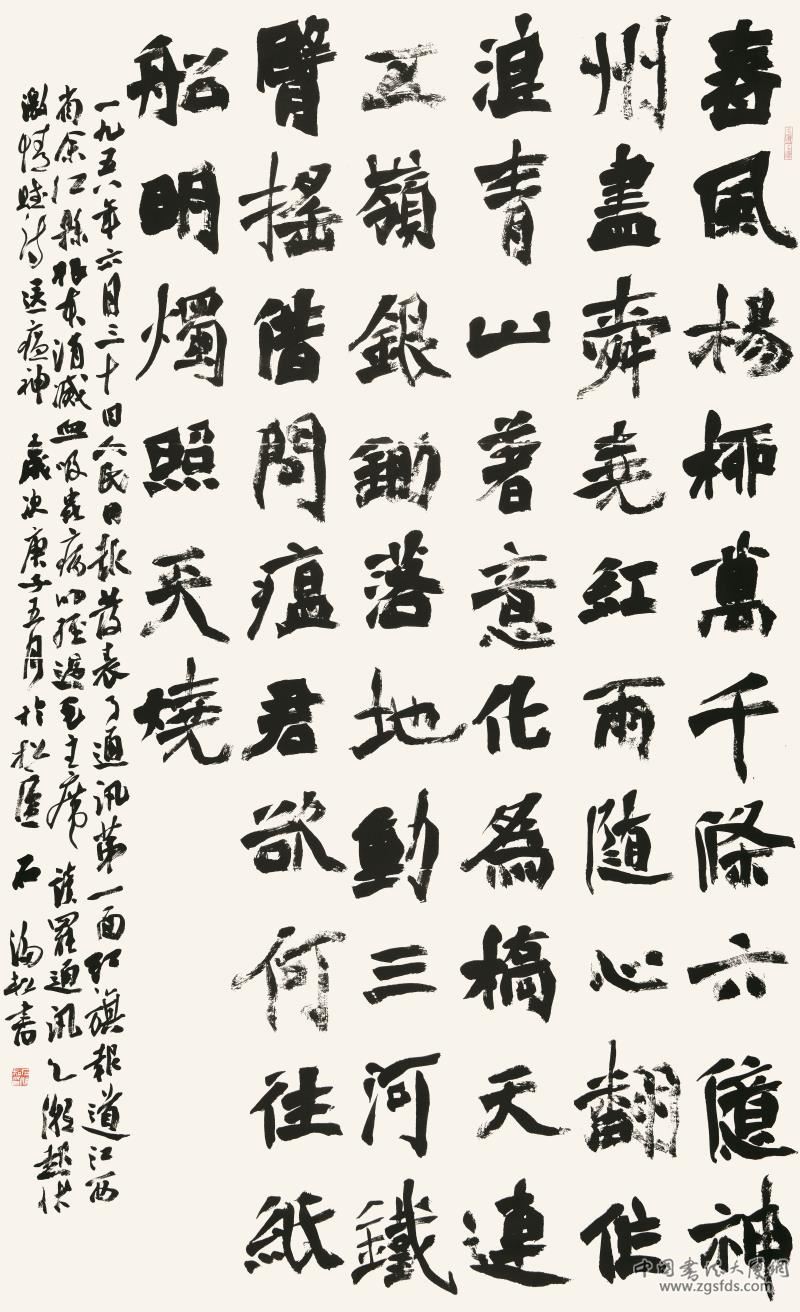 春風楊柳萬千條六億神
州盡舜堯紅雨随心翻作
浪青山著意化為橋天連
五嶺銀鋤落地動三河鐵
臂搖借問瘟君欲何往紙
船明燭照天燒
一九五八年六月三十日人民日報發表了通訊第一面紅旗報道江西
省余江縣根本消滅血吸蟲病的經過毛主席讀罷通訊心潮起伏
激情賦詩送瘟神 歲次庚子五月於松 石 書
www.zgsfds.com